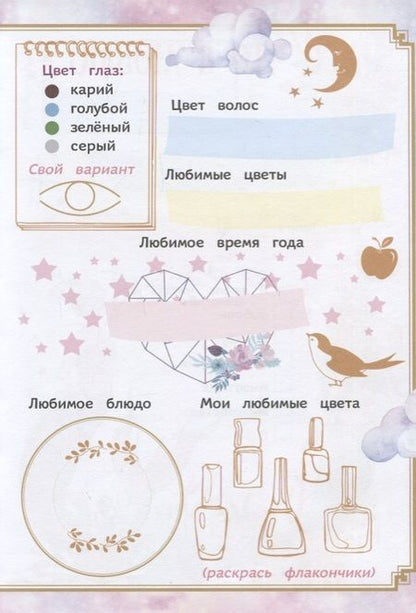 Цвет глаз:
карий
голубой
зелёный
серый
Свой вариант
Цвет волос
Любимые цветы
Любимое время года
Любимое блюдо
Мои любимые цвета
(раскрась флакончики)